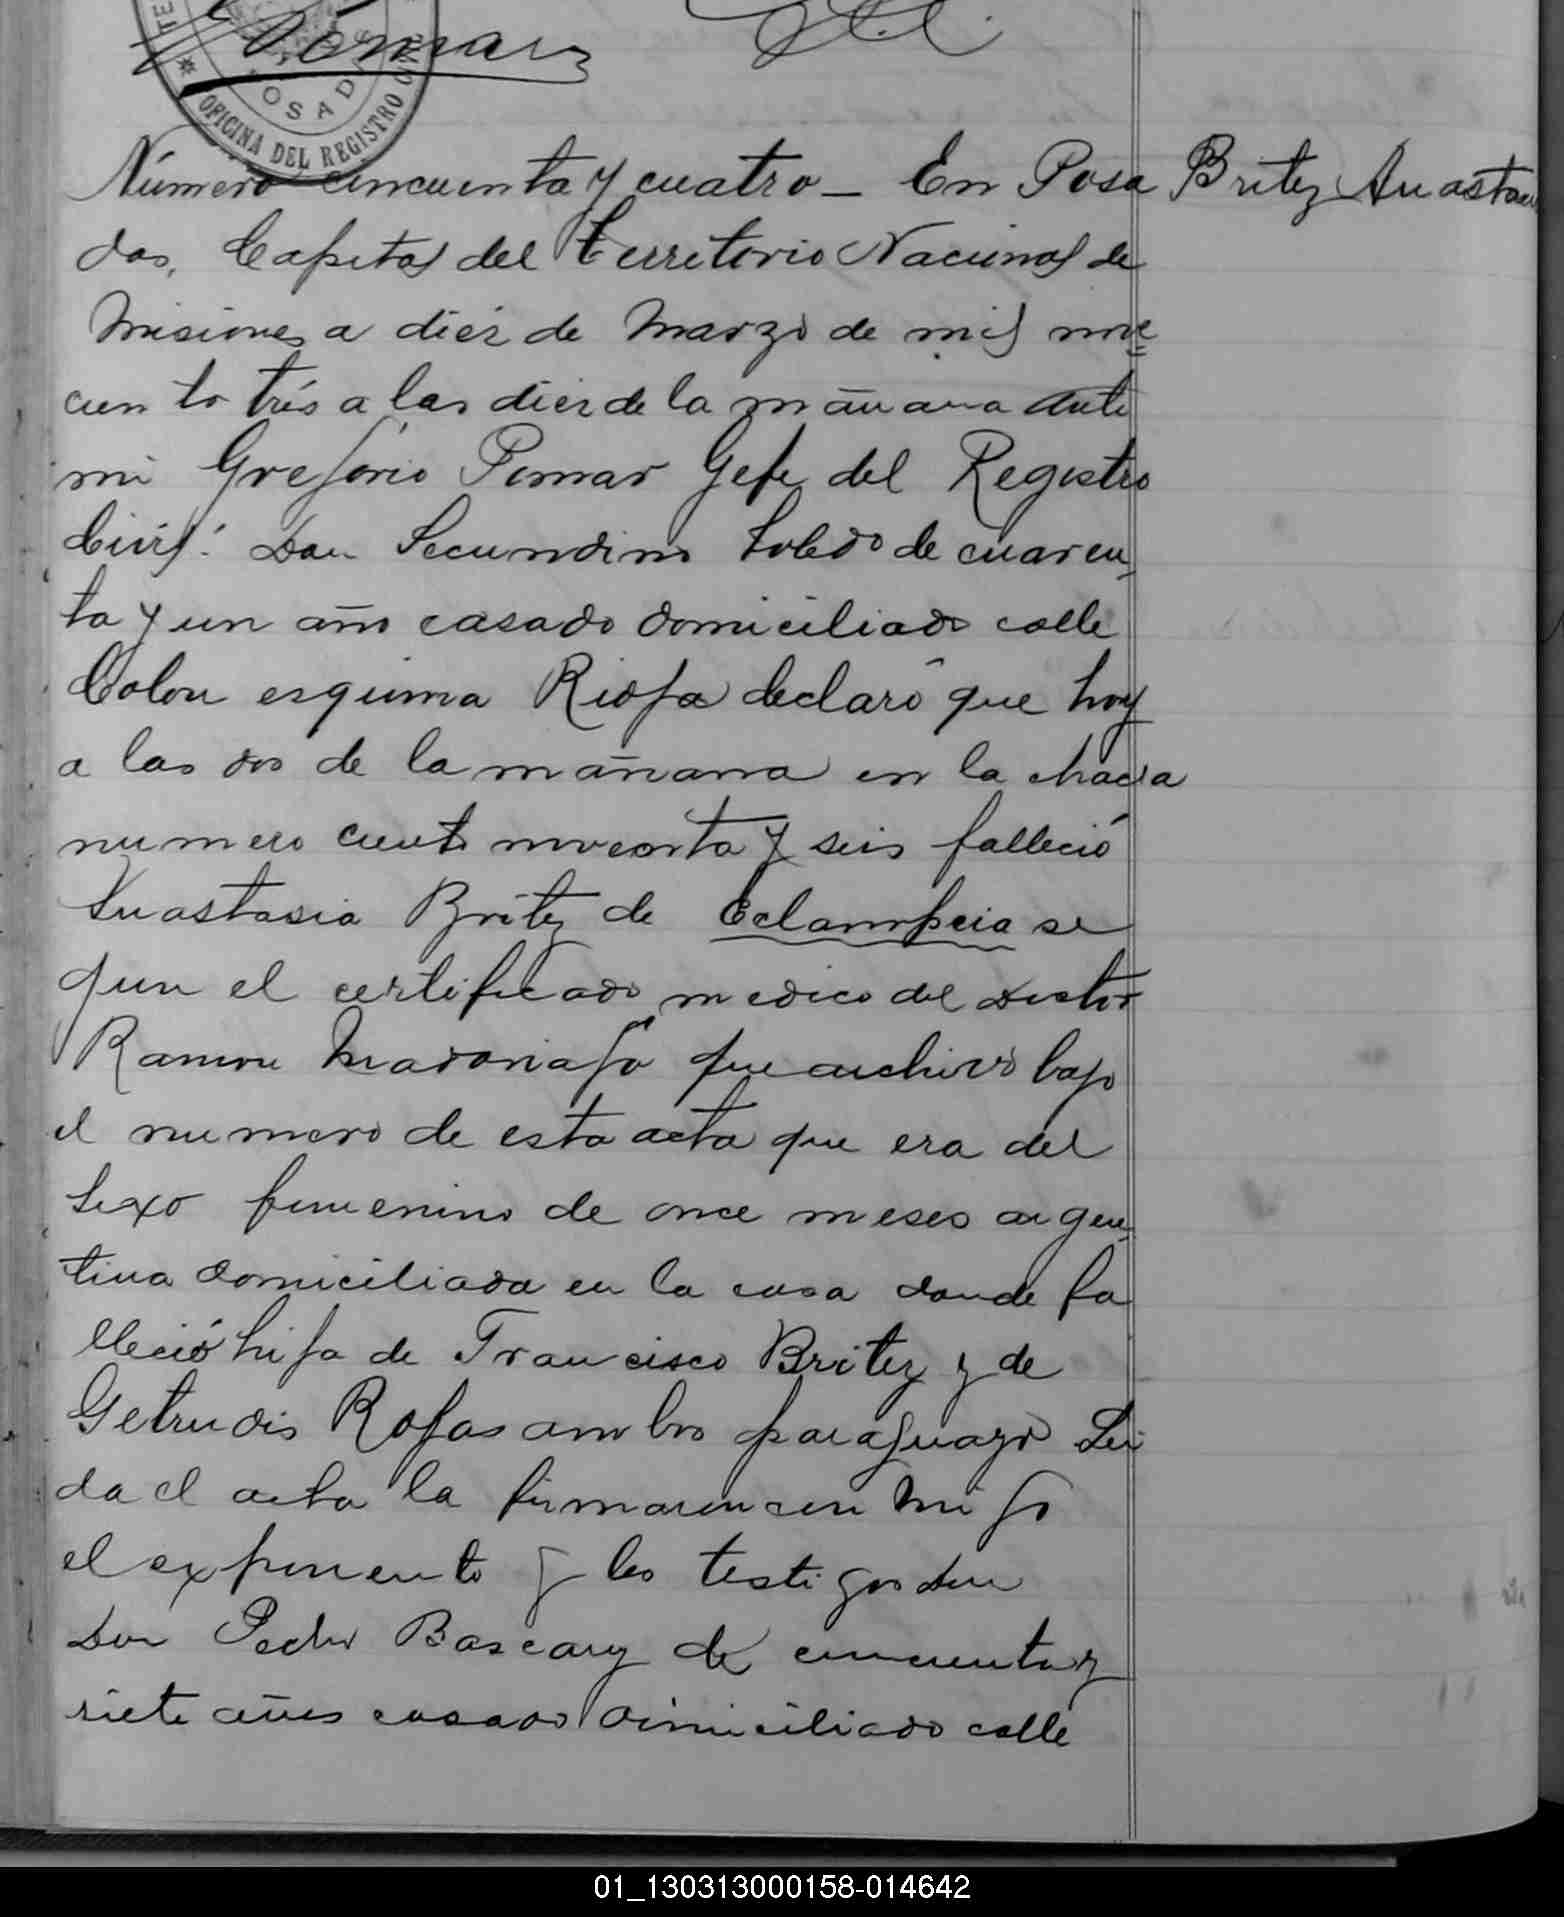 Pomar
POSADAS
OFICINA DEL REGISTRO CIVIL
Número cincuenta y cuatro – En Posa
Britez Anastacia
das, Capital del Territorio Nacional de
Misiones a diez de Marzo de mil nove
ciento trés a las diez de la mañana ante
mi Gregorio Pomar Gefe del Registro
Civil: Don Secundino Toledo de cuaren
ta y un año casado domiciliado calle
Colon esquina Rioja declaró que hoy
a las dos de la mañana en la chacra
numero ciento noventa y seis falleció
Anastasia Britez de Eclampcia se
gun el certificado medico del Doctor
Ramon Madariaga que archivo bajo
el numero de esta acta que era del
sexo femenino de once meses argen
tina domiciliada en la casa donde fa
lleció hija de Francisco Britez y de
Getrudis Rojas ambos paraguayo Lei
da el acta la firmaron con migo
el exponento y los testigos Don
Don Pedro Bascary de cincuenta y
siete años casado domiciliado calle
01_130313000158-014642